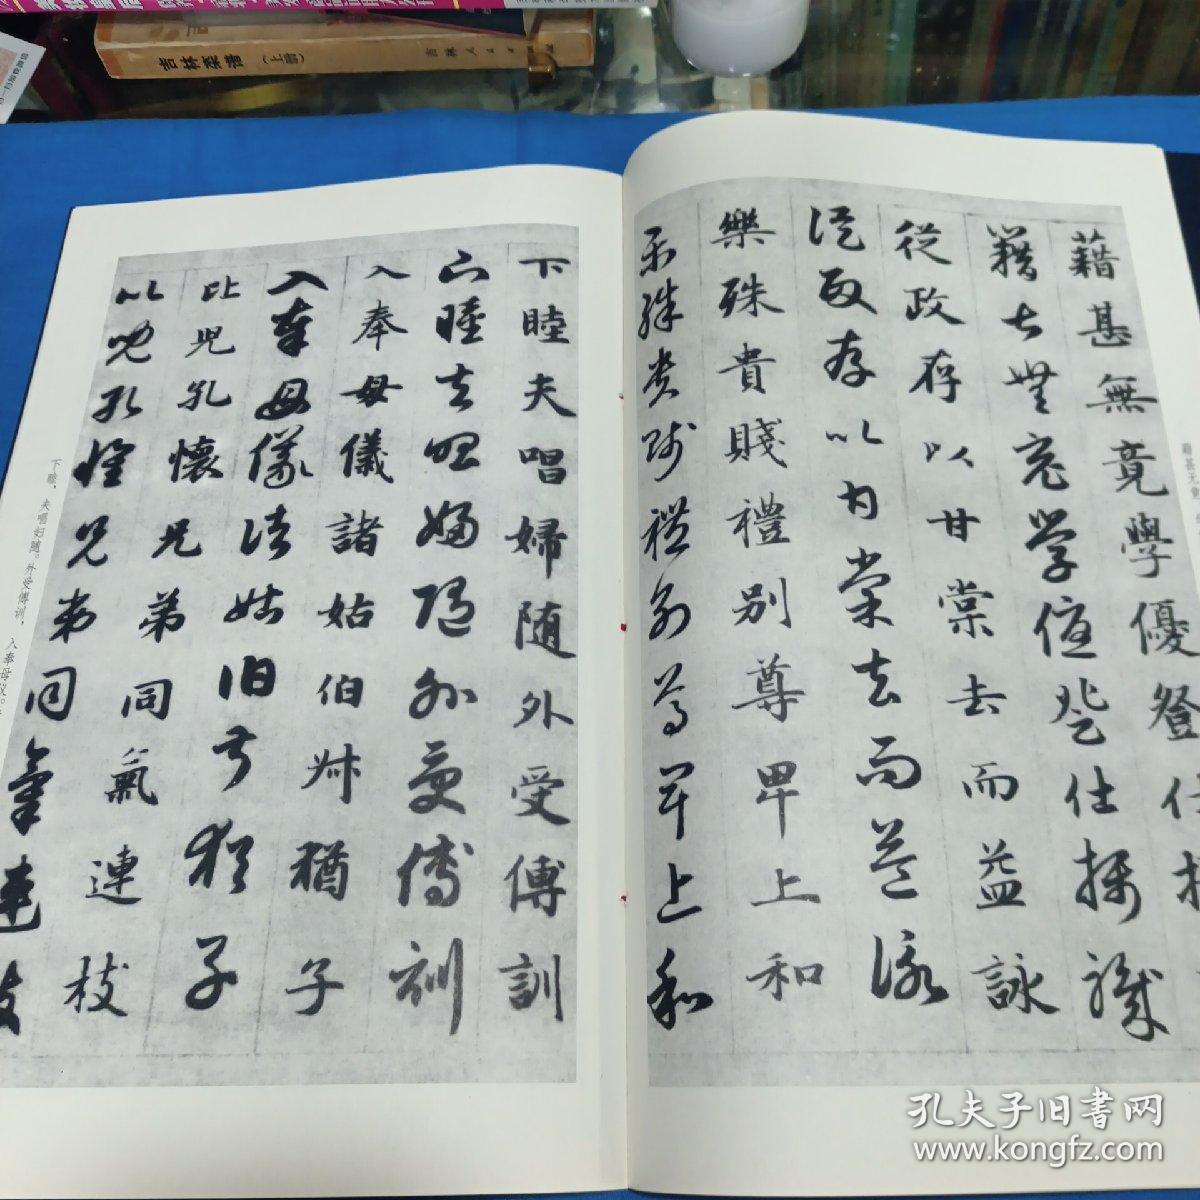 吉林菜谱（上册）
吉林人民
藉甚無竟學優登仕
藉甚無竟學優登仕攝職
從政存以甘棠去而益詠
從政存以甘棠去而益詠
樂殊貴賤禮別尊卑上和
樂殊貴賤禮別尊卑上和
下睦夫唱婦随外受傅訓
下睦夫唱婦随外受傅訓
入奉母儀諸姑伯叔猶子
入奉母儀諸姑伯叔猶子
比兒孔懷兄弟同氣連枝
比兒孔懷兄弟同氣連枝
下睦，夫唱妇随。外受傅训，入奉母仪。
藉甚无竟
孔夫子旧书网
www.kongfz.com